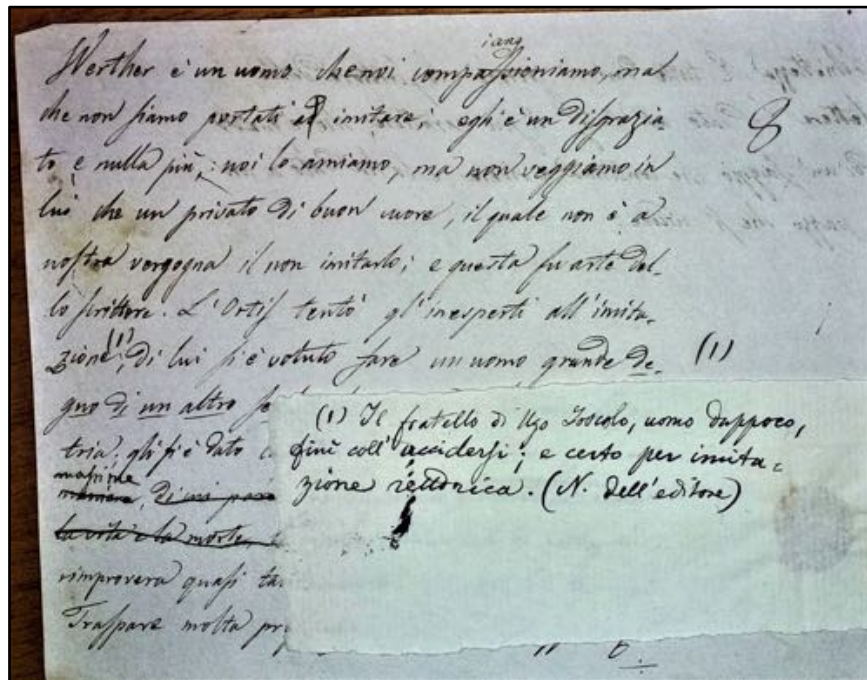 iang
Werther è un uomo che noi compassioniamo, ma
che non siamo portati ad imitare; egli è un disgrazia
to e nulla più; noi lo amiamo, ma non veggiamo in
lui che un privato di buon cuore, il quale non è a
nostra vergogna il non imitarlo; e questa fu arte del-
lo scrittore. L'Ortis tentò gl'inesperti all'imita-
zione (1); di lui si è voluto fare un uomo grande de- (1)
gno di un altro se
tria; gli si è dato
massime
maniera, di cui
la vita e la morte,
rimprovera quasi
Traspare molta
(1) Il fratello di Ugo Foscolo, uomo dappoco,
finì coll'uccidersi; e certo per imita-
zione rettorica. (N. dell'editore)
8